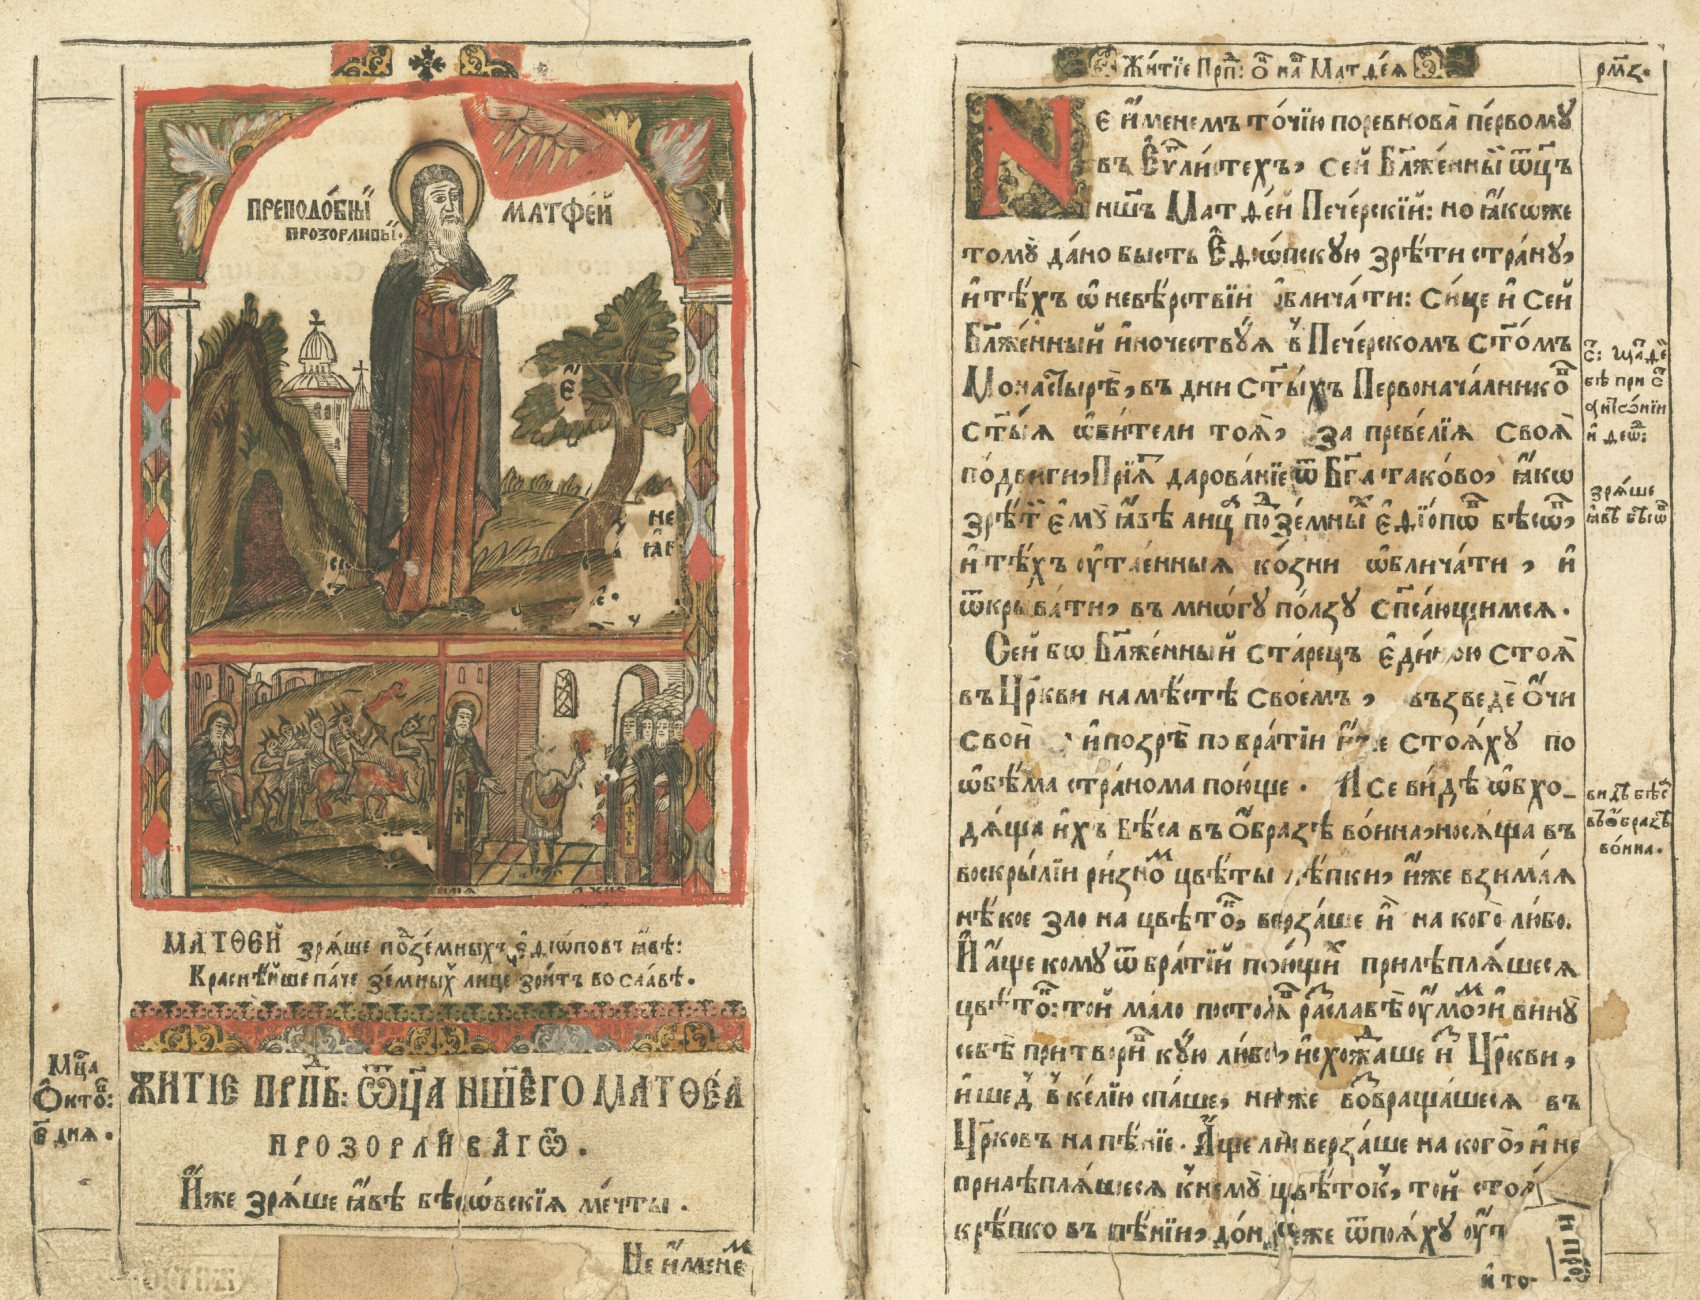 ПРЕПОДО́БНЫЙ
МАТФЕ́Й
ПРОЗОРЛИВЫ́.
МАТѲЕЙ зрѧ́ше по̑зе́мныхъ є҆ѳїѡ́повъ ꙗ҆́вѣ:
Краснѣ́йше па́че зе́мны́хъ лицѐ зри́тъ во сла́вѣ.
Мц҃а
Ѻ҆кто́в:
є҃ дня.
ЖИТІЕ ПРПⷣБ: Ѿц҃А НШ҃ЕГО МАТѲЕ́А
ПРОЗОРЛИ́ВАГѠ.
И҆́же зрѧ́ше ꙗ҆́вѣ бѣсѡ́вскїѧ мечты̀.
Не и҆́мене́м
Жи́тїе Прпⷣ: Ѻ҆ на҃ Матѳе́а
рм҃з.
Nе и҆́менемъ то́чїю поревнова̀ пе́рвому
въ Є҆ѵⷢ҇лі́стехъ, сей Бл҃же́нный ѿц҃ъ
нш҃ъ Матѳе́й Пече́рскїй: но ꙗ҆́коже
тому̀ да́но бысть Є҆ѳїѡ́пскую зрѣ́ти страну̀,
и҆ тѣ́хъ ѡ҆ невѣ́рствїи ѡ҆блича́ти: Си́це и҆ сей
Бл҃же́нный и҆́ночествуѧ в̾ Пече́рскомъ Ст҃о́мъ
Монастырѣ̀, въ дни Ст҃ы́хъ Первонача́лникѡв
Ст҃ы́ѧ ѡ҆би́тели тоѧ̀, за преве́лїѧ своѧ̀
по́двиги, Прїѧ́т дарова́нїе ѿ Бг҃а тако́во, ꙗ҆́кѡ
зрѣ́ти є҆му̀ ꙗ҆́вѣ лицⷶ поⷣзе́мныⷯ є҆ѳїо́пѡв бѣсѡ́в,
и҆ тѣ́хъ ᲂу҆тае́нныѧ ко́зни ѡ҆блича́ти, и҆
ѿкрыва́ти, въ мнѡ́гу по́лзу сп҃са́ющимсѧ.
Сей бо Бл҃же́нный ста́рецъ є҆ди́ною стоѧ̀
въ Цр҃кви на мѣ́стѣ свое́мъ, възведѐ ѻ҆́чи
своѝ и҆ позрѣ̀ по бра́тїи и҆́же стоѧ́ху по
ѡ҆бѣ́ма стра́нома пою́ще. И се ви́дѣ ѡ҆бхо-
дѧ́ща и҆́хъ бѣ́са въ ѻ҆́бразѣ во́ина, носѧ́ща въ
воскры́лїи ри́зноⷨ цвѣ́ты лѣ́пки, и҆́же взима́ѧ
нѣ́кое зло на цвѣ́тоⷡ, верза́ше и҆̀ на кого̀ лю́бо.
И҆ а҆́ще кому̀ ѿ бра́тїй пою́щиⷯ прилѣплѧ́шесѧ
цвѣ́тоⷦ: той ма́ло постоѧ́в ра́славѣ ᲂу҆мо́м, и҆ вину̀
себѣ̀ притвори́в ку́ю лю́бо, и҆схожⷣа́ше и҆з̾ Цр҃кви,
и҆ ше́д в̾ ке́лїю спа́ше, ниже воⷥбраща́шесѧ въ
Цр҃ковъ на пѣ́нїе. А҆́ще ли верза́ше на кого̀, и҆ не
прилѣплѧ́шесѧ к̾ нему̀ цвѣ́ток, той стоѧ̀
крѣ́пко въ пѣ́нїи, до́ндеже ѿпоѧ́ху ᲂу҆́т
и҆ то-
с҃: ща́де
бѣ при с҃
а҆нтѡ́нїи
и҆ ѳеѡⷣ:
зрѧ́ше
ꙗ҆́вѣ бѣсѡ́в
видѣ бѣс
въ ѻ҆́бразѣ
во́ина.